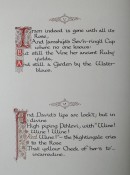 Iram indeed is gone with all its
Rose,
And Jamshyd's Sev'n-ring'd Cup
where no one knows:
But still the Vine her ancient Ruby
yields,
And still a Garden by the Water
blows.
And David's Lips are lock't; but in
divine
High piping Pehlevi, with "Wine!
Wine! Wine!
Red Wine!"—the Nightingale cries
to the Rose
That yellow Cheek of her's to
incarnadine.